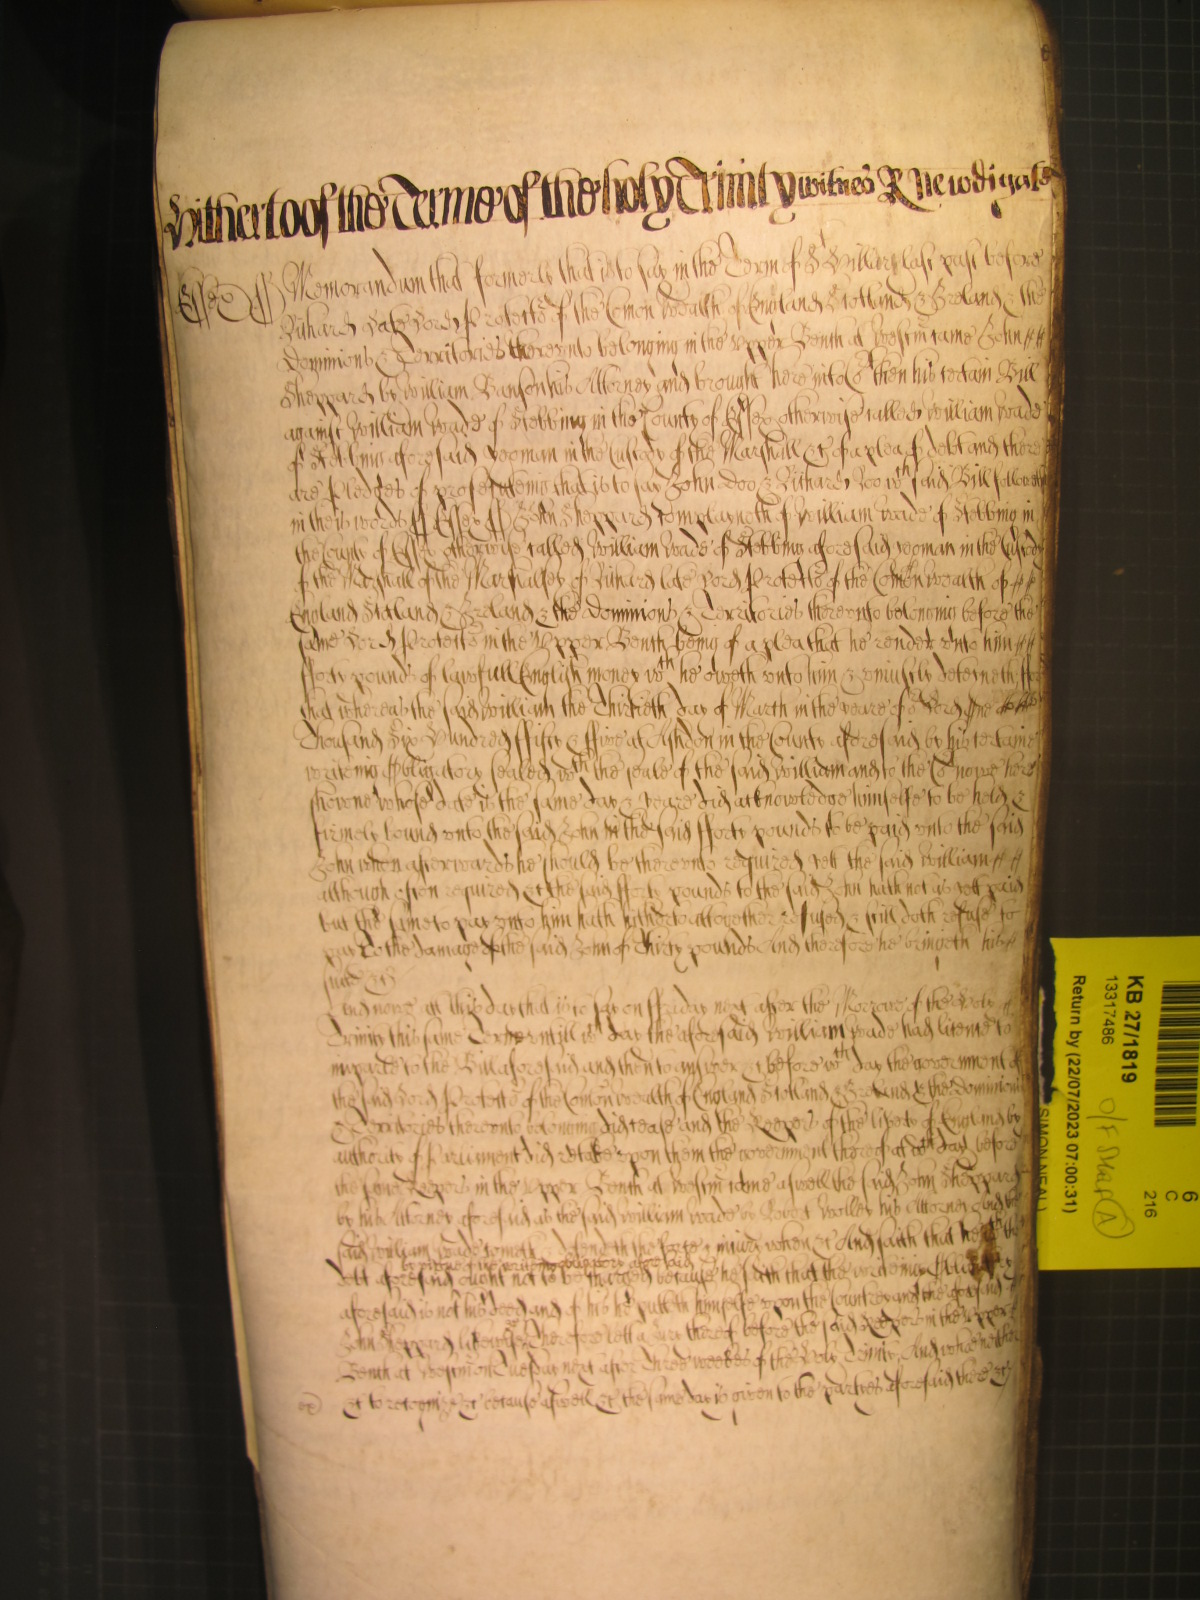 Hitherto of the Terme of the holy Trinity witnes R Newdigate
Essex ss Memorandum that formerly that is to say in the Term of St Hillary last past before
Richard late Lord Protector of the Comon wealth of England Scotland & Ireland & the
Dominions & Territories thereunto belonging in the upper Bench at Westmr came John
Sheppard by William Ranson his Attorney and brought here into Ct then his certain Bill
against William Wade of Stebbing in the County of Essex otherwise called William Wade
of Stebbing aforesaid yeoman in the Custody of the Marshall &c of a plea of debt and there
are Pledges of prosecuteing that is to say John Doo & Richard Roo wch said Bill followeth
in theis words ss Essex ss John Sheppard complayneth of William Wade of Stebbing in
the County of Essex otherwise called William Wade of Stebbing aforesaid yeoman in the Custody
of the Marshall of the Marshalsey of Richard late Lord Protector of the Comon wealth of
England Scotland & Ireland & the Dominions & Territories thereunto belonging before the
same Lord Protector in the Upper Bench being of a plea that he render unto him
fforty pounds of lawfull English money wch he oweth unto him & uniustly deteyneth ffor
that whereas the said William the Thirtieth day of March in the yeare of or Lord One
Thousand Six Hundred ffifty & ffive at Ashdon in the County aforesaid by his certaine
writeing Obligatory sealed wth the seale of the said William and to the Ct nowe here
showne whose date is the same day & yeare did acknowledge himselfe to be held &
firmely bound unto the said John in the said fforty pounds to be paid unto the said
John when afterwards he should be thereunto required yett the said William
although often required &c the said fforty pounds to the said John hath not as yett paid
but the same to pay unto him hath hitherto altogether refused & still doth refuse to
pay To the damage of the said John of Thirty pounds And therefore he bringeth his
suite &c
And nowe att this day that is to say on ffriday next after the Morrow of the Holy
Trinity this same Terme untill wch day the aforesaid William Wade had licence to
imparle to the Bill aforesaid and then to answer &c before wch day the government of
the said Lord Protector of the Comon wealth of England Scotland & Ireland & the Dominions
& Territories thereunto belonging did cease and the Keepers of the liberty of England by
authority of Parliament did retake upon them the government thereof at wch day before
the same Keepers in the Upper Bench at Westmr came aswell the said John Sheppard
by his Attorney aforesaid as the said William Wade by Robert his Attorney and the
said William Wade cometh & defendeth the force & iniury when &c And saith that he wth the
by vertue of the writeing obligatory aforesaid
debt aforesaid ought not to be charged because he saith that the writeing Obligatory
aforesaid is not his deed and of this he putteth himselfe upon the Countrey and the aforesaid
John Sheppard likewise &c Therefore lett a Jury thereof before the said Keepers in the Upper
Bench at Westmr on Tuesday next after Three weekes of the Holy Trinity And who neither
&c to recognize &c because aswell &c the same day is given to the parties aforesaid there &c
KB 27/1819
13317486
Return by (22/07/2023 07:00:31)
SIMON NEAL)
6
C
216
A